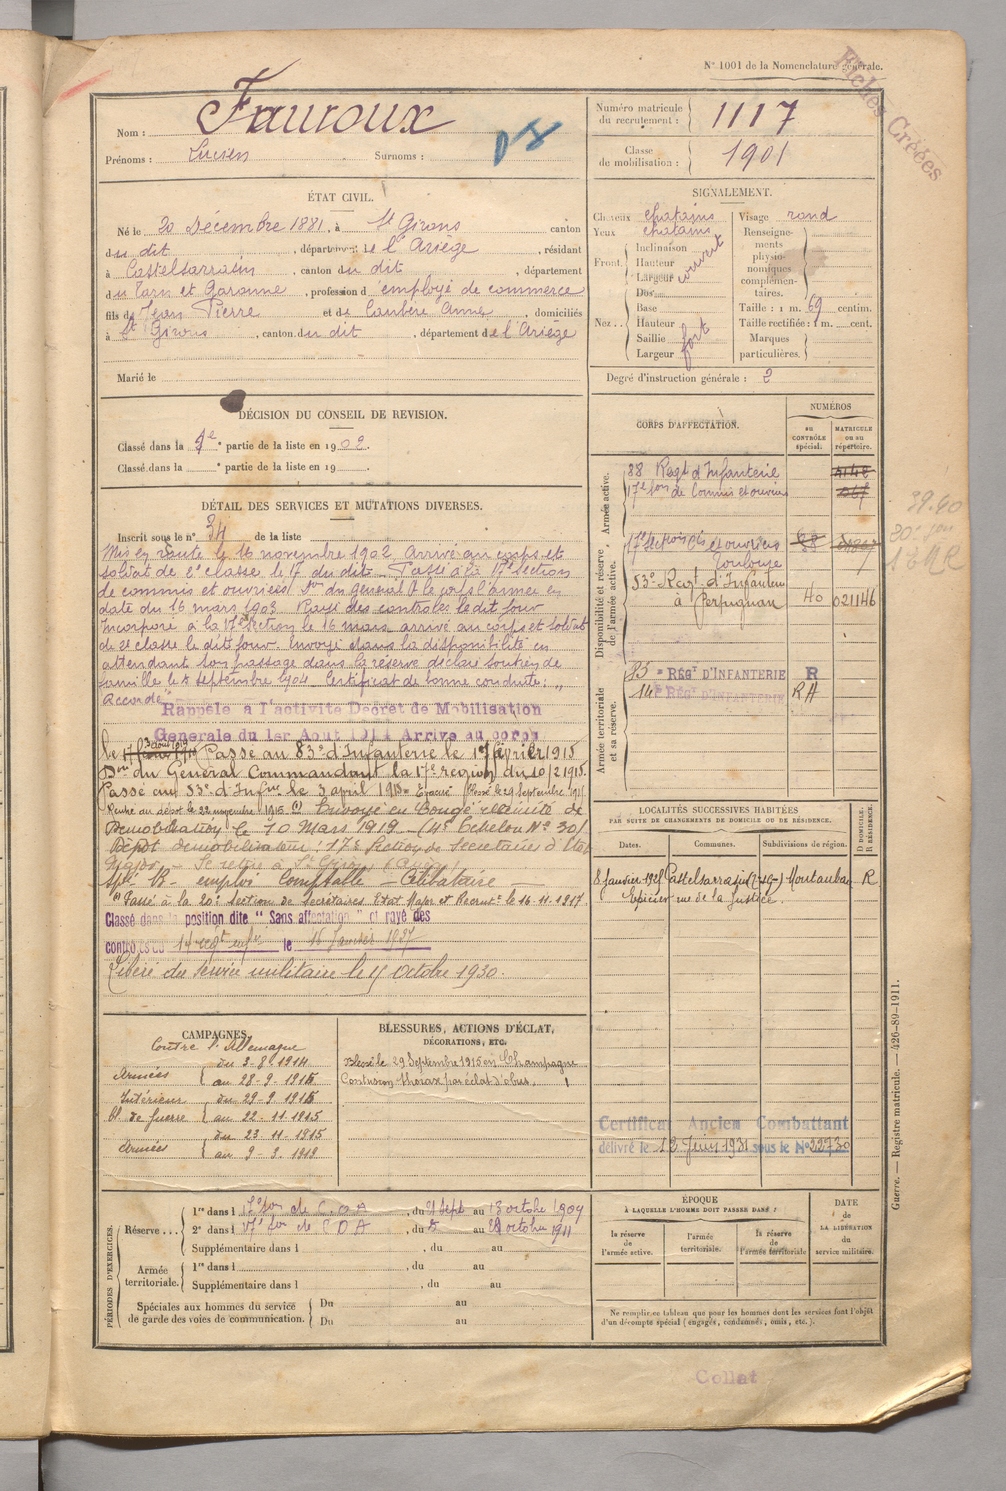 N° 1001 de la Nomenclature générale.
Fiches Créées
Nom : Fauroux
Prénoms : Lucien Surnoms :
Numéro matricule du recrutement : 1117
Classe de mobilisation : 1901
ÉTAT CIVIL.
Né le 20 Décembre 1881, à St Girons canton
du dit, département de l'Ariège, résidant
à Castelsarrasin, canton du dit, département
du Tarn et Garonne, profession d'employé de commerce
fils de Jean Pierre et de Loubère Anne, domiciliés
à St Girons, canton du dit, département de l'Ariège
Marié le
SIGNALEMENT.
Cheveux chatains
Yeux chatains
Front. Inclinaison
Hauteur
Largeur
couvert
Nez.. Dos
Base
Hauteur
Saillie
Largeur
fort
Visage rond
Renseignements physionomiques complémentaires.
Taille : 1 m. 69 centim.
Taille rectifiée : 1 m. cent.
Marques particulières.
Degré d'instruction générale : 2
DÉCISION DU CONSEIL DE REVISION.
Classé dans la 1e partie de la liste en 1902.
Classé dans la e partie de la liste en 19 .
CORPS D'AFFECTATION.
NUMÉROS
AU CONTRÔLE spécial.
MATRICULE ou au répertoire.
Armée active.
88 Regt d'Infanterie
17e son de Commis et ouvriers
Disponibilité et réserve de l'armée active.
17e Section Cis et ouvriers 88
Toulouse
53e Regt d'Infanterie
à Perpignan 40 021146
Armée territoriale et sa réserve.
85e RÉGt D'INFANTERIE R
14e RÉGt D'INFANTERIE RA
DÉTAIL DES SERVICES ET MUTATIONS DIVERSES.
Inscrit sous le n° 34 de la liste
Mis en route le 16 novembre 1902. Arrivé au corps et
soldat de 2e classe le 17 du dit. Passé à la 17e section
de commis et ouvriers Don du général Ct le corps d'armée en
date du 16 mars 1903. Rayé des contrôles le dit jour
Incorporé à la 17e section le 16 mars, arrivé au corps et soldat
de 2e classe le dit jour. Envoyé dans la disponibilité en
attendant son passage dans la réserve déclaré soutien de
famille le septembre 1904. Certificat de bonne conduite : "
Accordé"
Rappelé à l'activité Décret de Mobilisation
Générale du 1er Aout 1914 Arrivé au corps
le 3 août 1914 Passé au 83e d'Infanterie le 17 février 1915
Don du Général Commandant la 17e région du 10/2 1915.
Passé au 53e d'Infrie le 3 avril 1915. Evacué (Blessé le 29 septembre 1915
Rentré au dépôt le 22 novembre 1915 (1) Envoyé en Congé illimité de
Démobilisation le 10 Mars 1919 (4e Echelon N° 30)
Dépôt démobilisateur : 17e Section de Secretaires d'Etat
Major. Se retire à St Girons
Spé. B. emploi Comptable - Célibataire
(1) Passé à la 20e section de Secrétaires Etat Major et Recrutt le 16-11-1917
Classé dans la position dite "Sans affectation" et rayé des
contrôles du 14 regt infie le 16 Janvier 1927
Libéré du service militaire le 15 octobre 1930.
LOCALITÉS SUCCESSIVES HABITÉES
PAR SUITE DE CHANGEMENTS DE DOMICILE OU DE RÉSIDENCE.
Dates. Communes. Subdivisions de région. D DOMICILE. R RÉSIDENCE.
8 janvier 1925 Castelsarrasin (T-&-G-) Montauban R
Epicier rue de la Justice.
CAMPAGNES.
Contre l'Allemagne
Armées du 3-8-1914
au 28-9-1915
Intérieur du 29-9-1915
Bl. de guerre au 22-11-1915
Armées du 23-11-1915
au 9-3-1919
BLESSURES, ACTIONS D'ÉCLAT,
DÉCORATIONS, ETC.
Blessé le 29 Septembre 1915 en Champagne
Contusion thorax par éclat d'obus.
Certificat Ancien Combattant
délivré le 12 Juin 1931 sous le N° 22730
PÉRIODES D'EXERCICES.
Réserve... 1re dans l 17e son de C.O.A, du 21 sept au 13 octobre 1909
2e dans l 17e son de COA, du au octobre 1911
Supplémentaire dans l , du au
Armée territoriale. 1re dans l , du au
Supplémentaire dans l , du au
Spéciales aux hommes du service de garde des voies de communication. Du au
Du au
ÉPOQUE
À LAQUELLE L'HOMME DOIT PASSER DANS :
la réserve de l'armée active.
l'armée territoriale.
la réserve de l'armée territoriale
DATE de LA LIBÉRATION du service militaire.
Ne remplir ce tableau que pour les hommes dont les services font l'objet
d'un décompte spécial (engagés, condamnés, omis, etc.).
Guerre. — Registre matricule. — 426-89-1911.
Collat